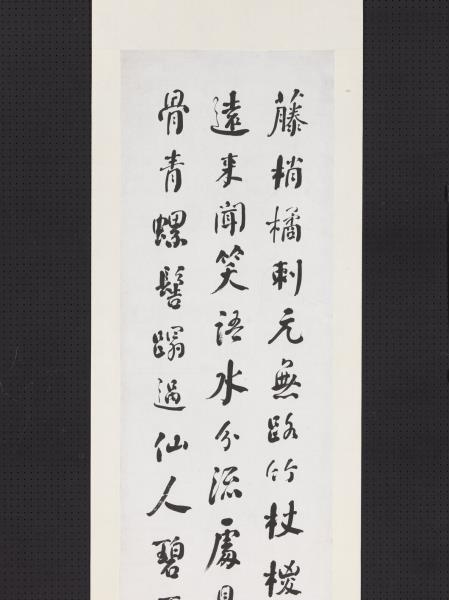 藤梢橘刺元無路竹杖椶
遠來聞笑語水分流處見
骨青螺髻蹋遍仙人碧